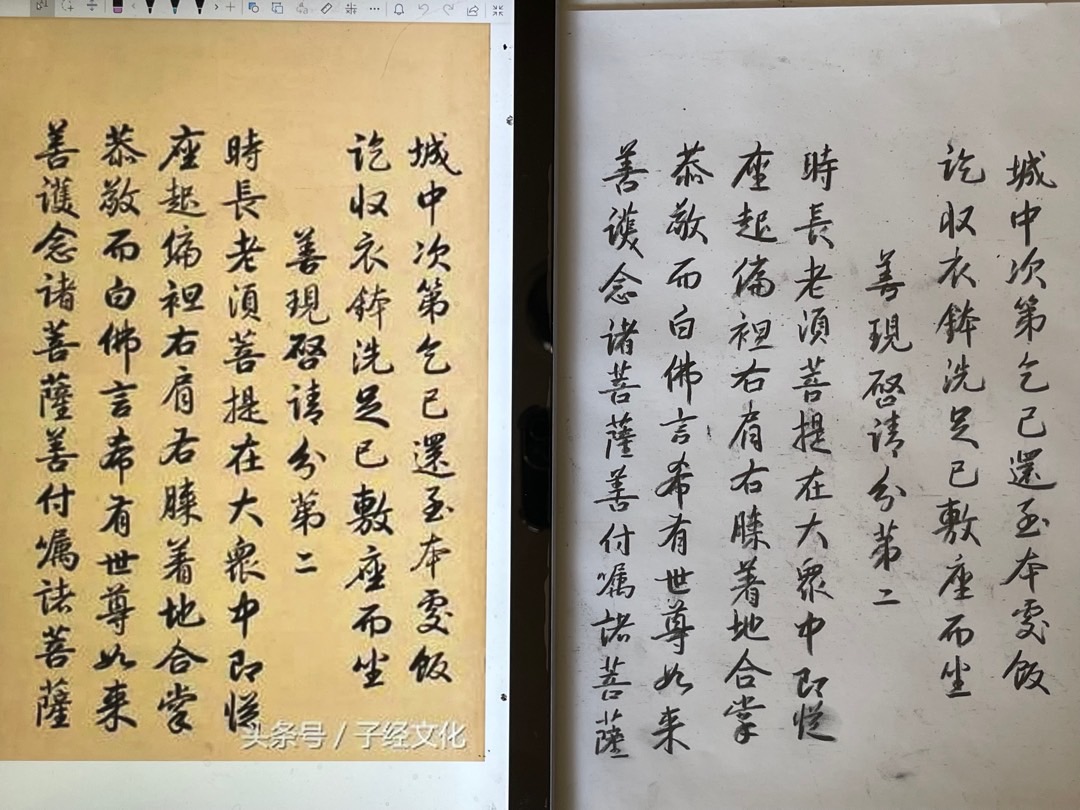 城中次第乞已還至本處飯
訖収衣鉢洗足已敷座而坐
善現啓請分第二
時長老湏菩提在大衆中即從
座起偏袒右肩右膝着地合掌
恭敬而白佛言希有世尊如来
善護念諸菩薩善付嘱諸菩薩
头条号 / 子经文化
城中次第乞已還至本處飯
訖収衣鉢洗足已敷座而坐
善現啓請分第二
時長老湏菩提在大衆中即從
座起偏袒右肩右膝着地合掌
恭敬而白佛言希有世尊如来
善護念諸菩薩善付嘱諸菩薩